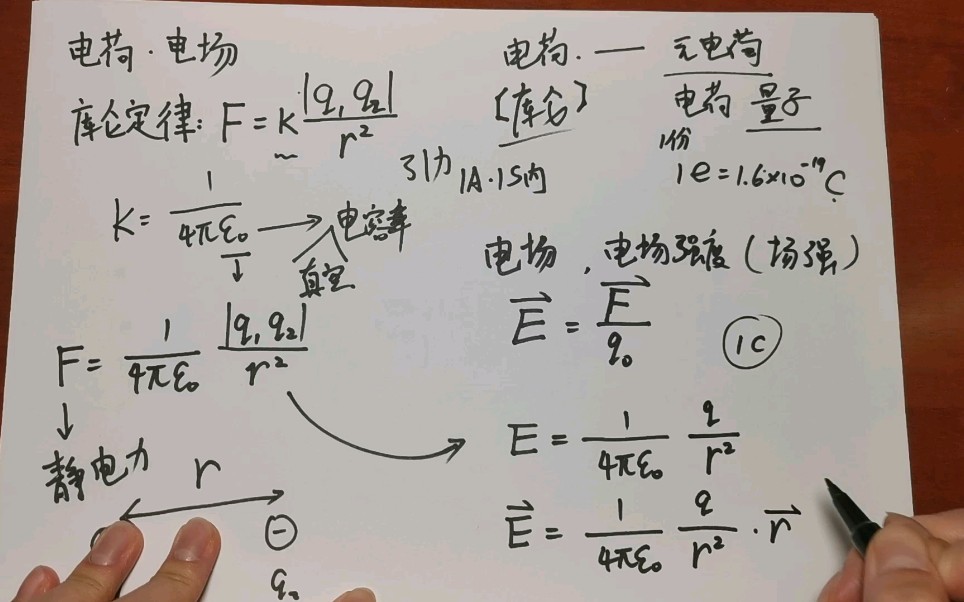 电荷·电场
库仑定律: F = k |q₁ q₂| / r²
k = 1 / 4πε₀ → 电容率
真空
F = 1 / 4πε₀ |q₁ q₂| / r²
↓
静电力
r
⊖
电荷. — 元电荷
[库仑]
电荷 量子
引力 1A·1S内
1份
1e = 1.6×10⁻¹⁹ C
电场, 电场强度(场强)
E⃗ = F⃗ / q₀
1C
E = 1 / 4πε₀ q / r²
E⃗ = 1 / 4πε₀ q / r² · r⃗